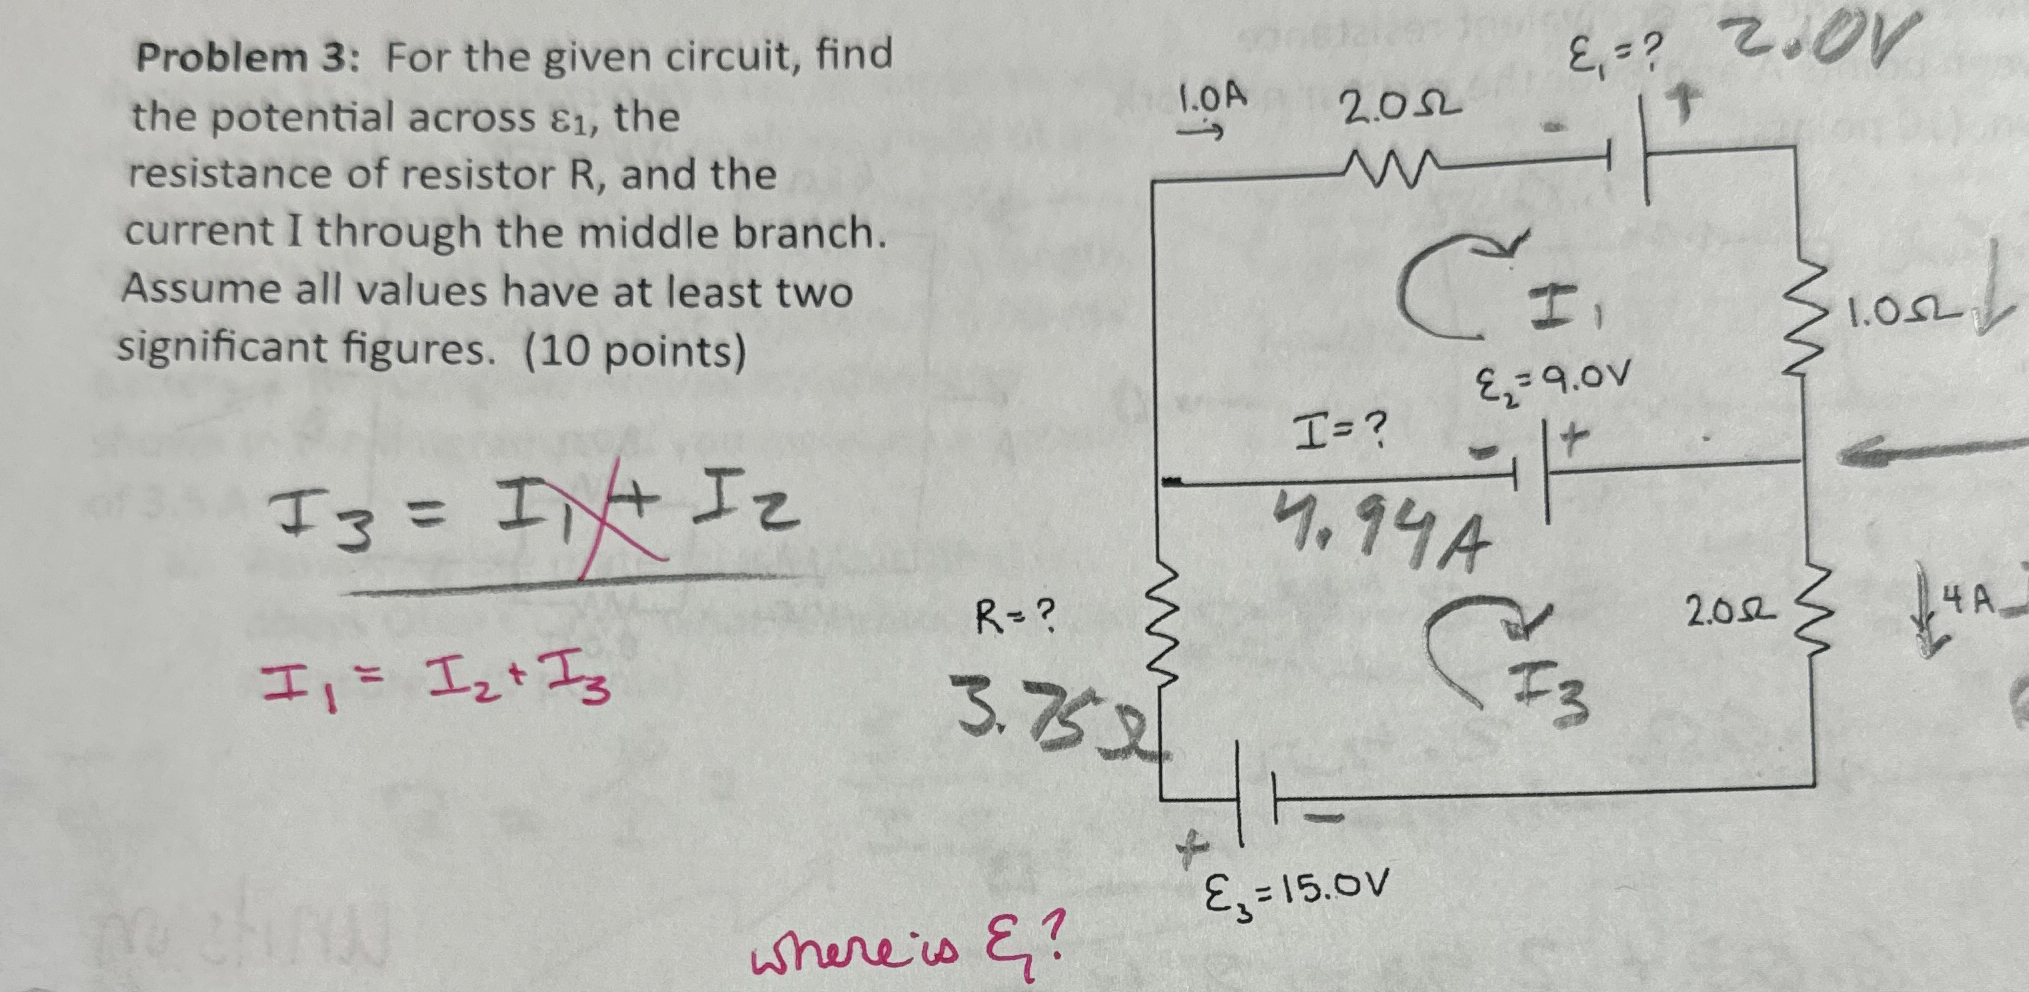 Problem 3: For the given circuit, find
the potential across ε1, the
resistance of resistor R, and the
current I through the middle branch.
Assume all values have at least two
significant figures. (10 points)
I3 = I1 + I2
I1 = I2 + I3
where is ε1?
ε1 = ? 2.0V
1.0A
2.0Ω
- +
I1
1.0Ω
ε2 = 9.0V
I = ?
- +
4.94A
R = ?
3.75Ω
2.0Ω
4A
I3
+ -
ε3 = 15.0V